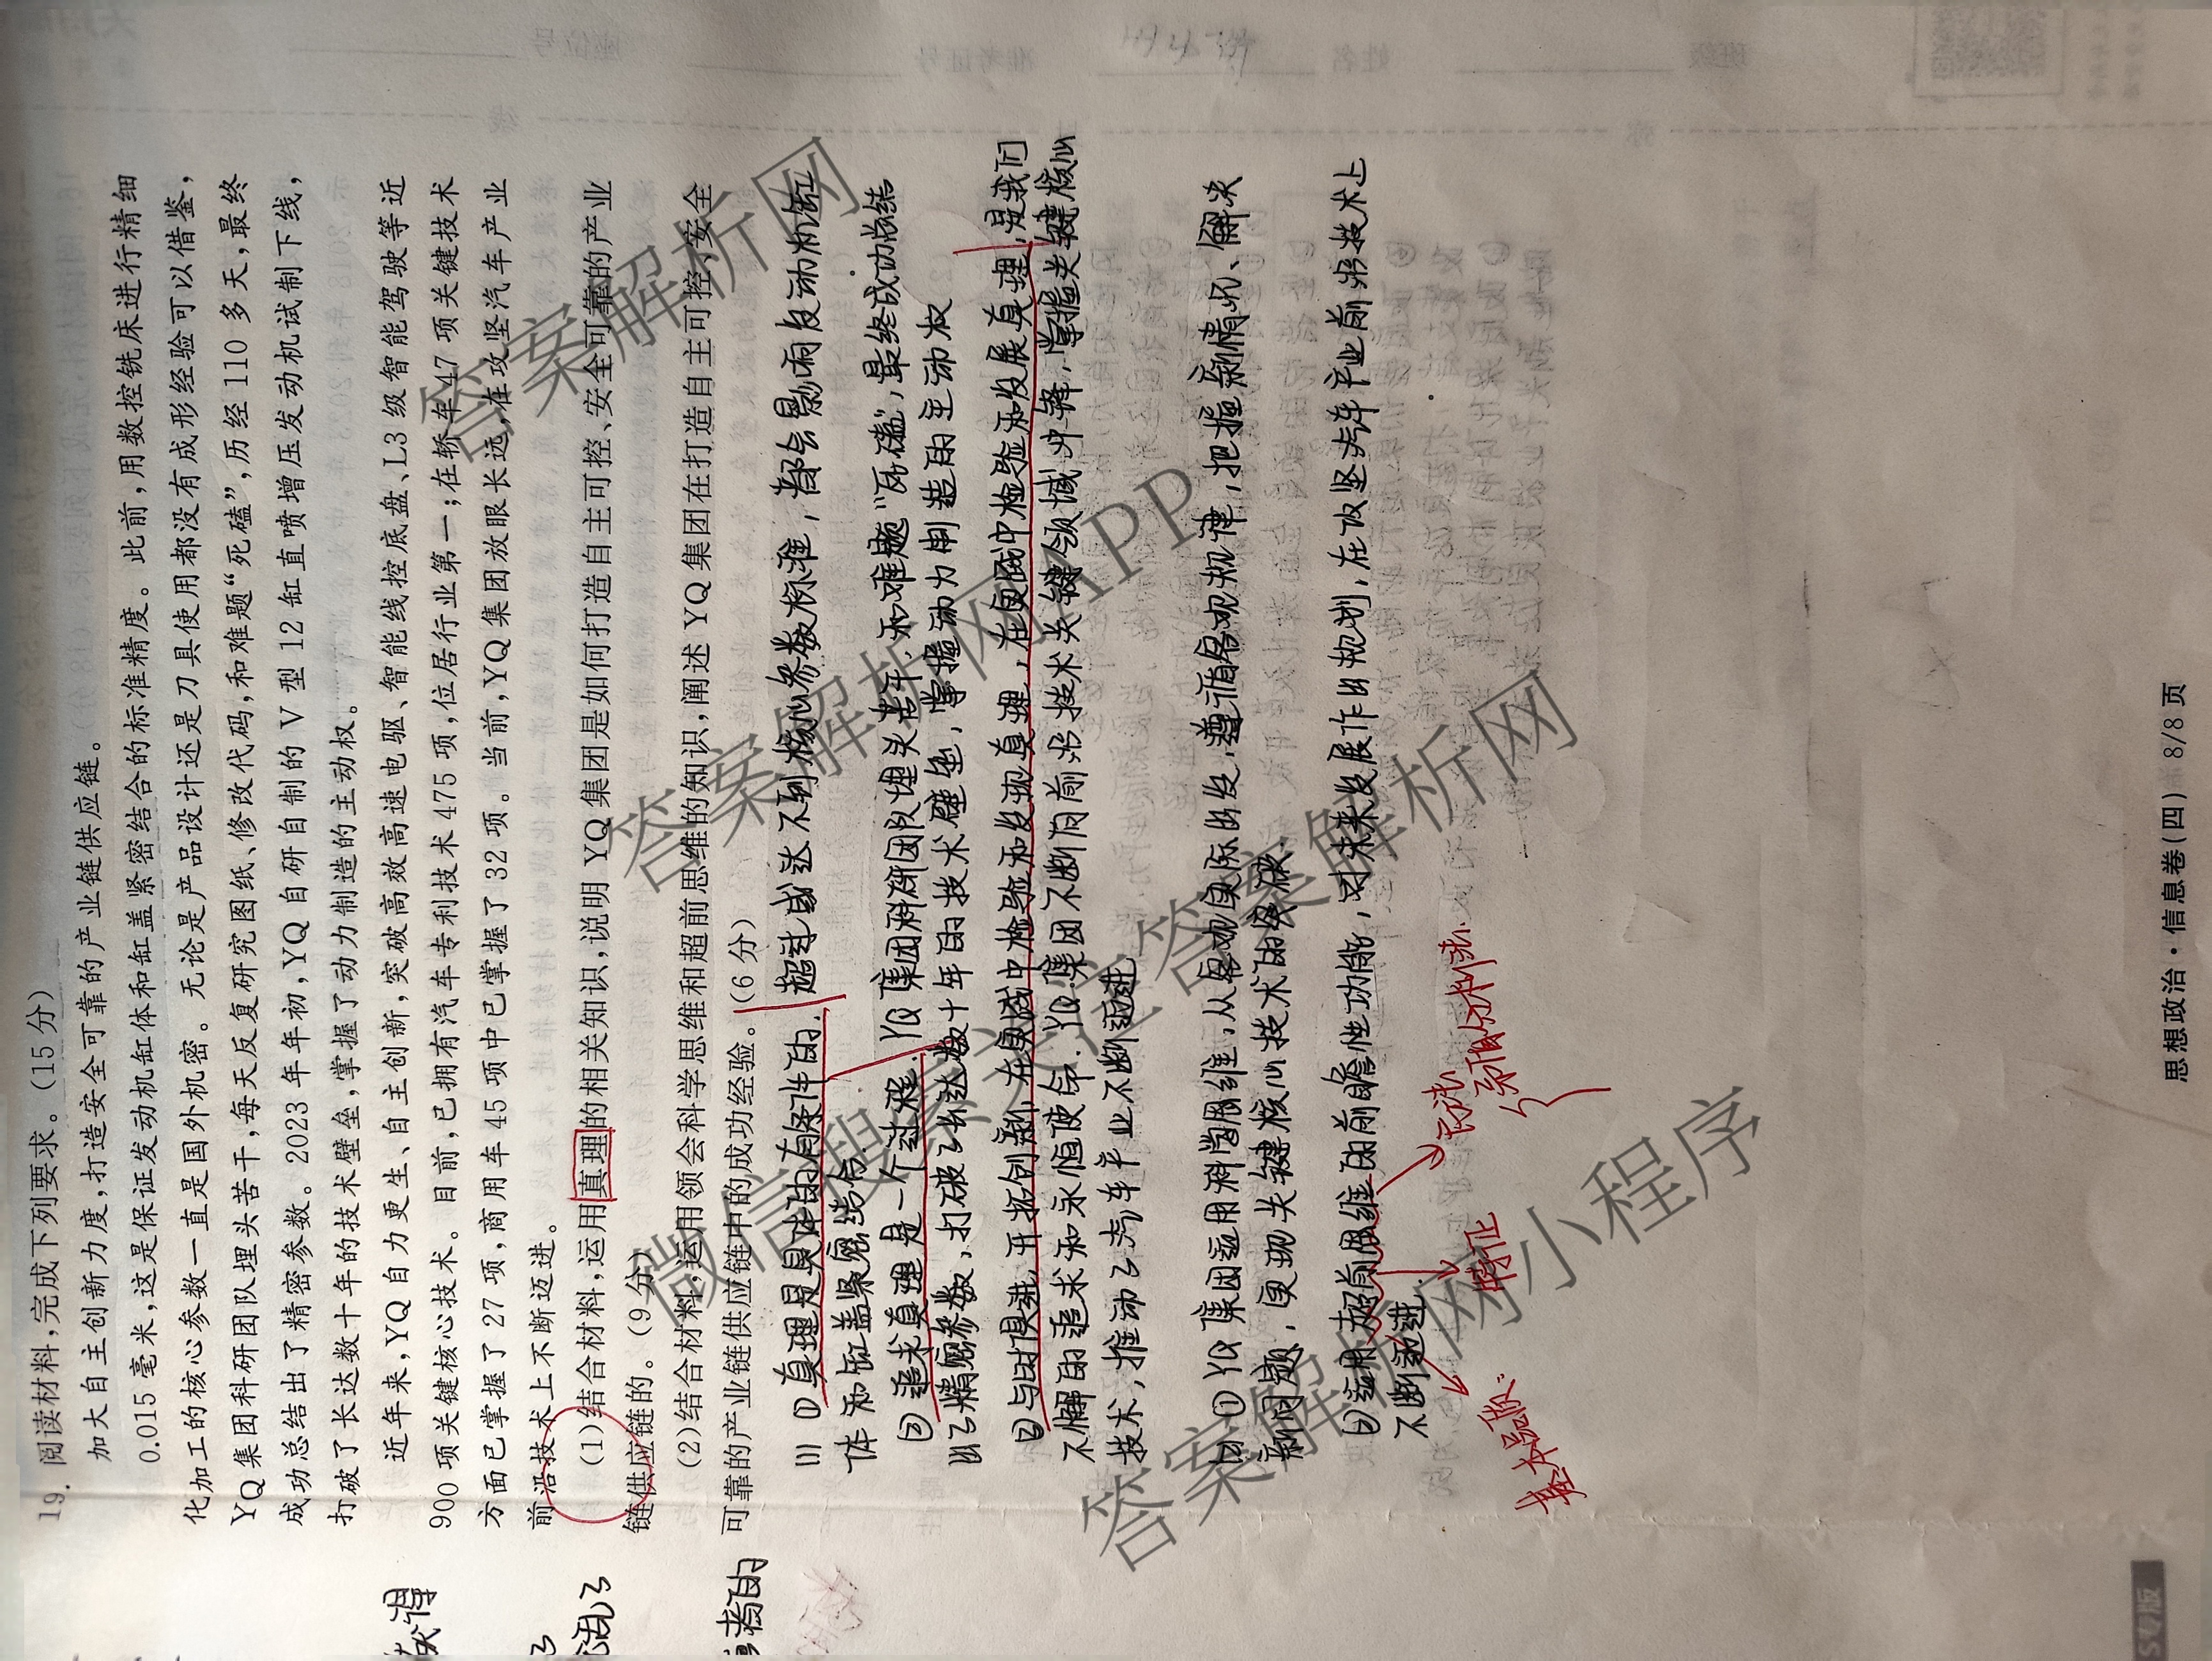 19. 阅读材料,完成下列要求。(15分)
加大自主创新力度,打造安全可靠的产业链供应链。
0.015毫米,这是保证发动机缸体和缸盖紧密结合的标准精度。此前,用数控铣床进行精细
化加工的核心参数一直是国外机密。无论是产品设计还是刀具使用都没有成形经验可以借鉴,
YQ集团科研团队埋头苦干,每天反复研究图纸、修改代码,和难题“死磕”,历经110多天,最终
成功总结出了精密参数。2023年年初,YQ自研自制的V型12缸直喷增压发动机试制下线,
打破了长达数十年的技术壁垒,掌握了动力制造的主动权。
近年来,YQ自力更生、自主创新,突破高效高速电驱、智能线控底盘、L3级智能驾驶等近
900项关键核心技术。目前,已拥有汽车专利技术475项,位居行业第一;在轿车47项关键技术
方面已掌握了27项,商用车45项中已掌握了32项。当前,YQ集团放眼长远,在攻坚汽车产业
前沿技术上不断迈进。
(1)结合材料,运用真理的相关知识,说明YQ集团是如何打造自主可控、安全可靠的产业
链供应链的。(9分)
(2)结合材料,运用领会科学思维和超前思维的知识,阐述YQ集团在打造自主可控、安全
可靠的产业链供应链中的成功经验。(6分)
(1) ①真理是具体的有条件的.超过或达不到核心参数标准,都会影响发动机缸
体和缸盖紧密结合
②追求真理是一个过程.YQ集团科研团队埋头苦干.和难题“死磕”,最终成功总结
出了精密参数,打破了长达数十年的技术壁垒,掌握动力制造的主动权
③与时俱进,开拓创新,在实践中检验和发现真理,在实践中检验和发展真理,是我们
不懈的追求和永恒使命.YQ集团不断向前沿技术关键领域冲锋,掌握关键核心
技术,推动了汽车产业不断迈进
(2) ①YQ集团运用科学思维,从客观实际出发,遵循客观规律,把握新情况、解决
新问题,实现关键核心技术的突破.
②运用超前思维的前瞻性功能,对未来发展作出规划,在攻坚汽车产业前沿技术上
不断迈进.
特征
获得
了
阔了
答案解析网
答案解析网APP
微信搜索关注答案解析网
答案解析网小程序
思想政治·信息卷(四) 8/8页
班级
姓名
准考证号
座位号